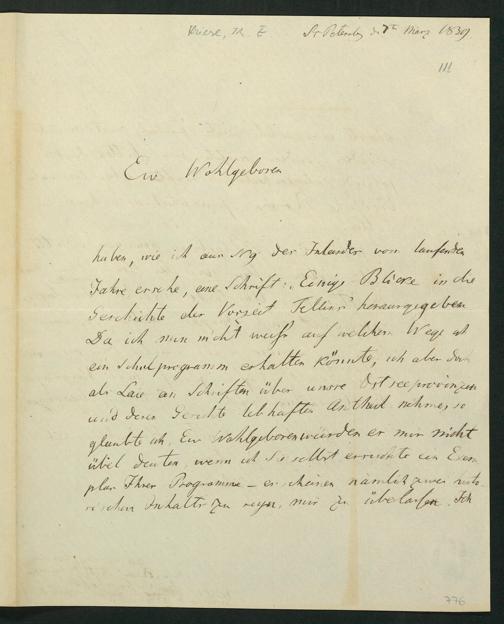 St Petersburg d. 7ten März 1839
111
Ew Wohlgeboren
haben, wie ich aus No 9 der Inlander vom laufenden
Jahre ersehe, eine Schrift: „Einige Blicke in die
Geschichte der Vorzeit Fellins" herausgegeben
Da ich nun nicht weiß auf welchem Wege ich
ein Schulprogramm erhalten könnte, ich aber doch
als Laie an Schriften über unsre Ostseeprovinzen
und deren Geschichte lebhaften Antheil nehme, so
glaubte ich, Ew Wohlgeboren würden es mir nicht
übel deuten, wenn ich Sie selbst ersuchte ein Exem
plar Ihrer Programme – es scheinen nämlich zwei histo
rischen Inhalts zu seyn, mir zu überlassen. Ich
776